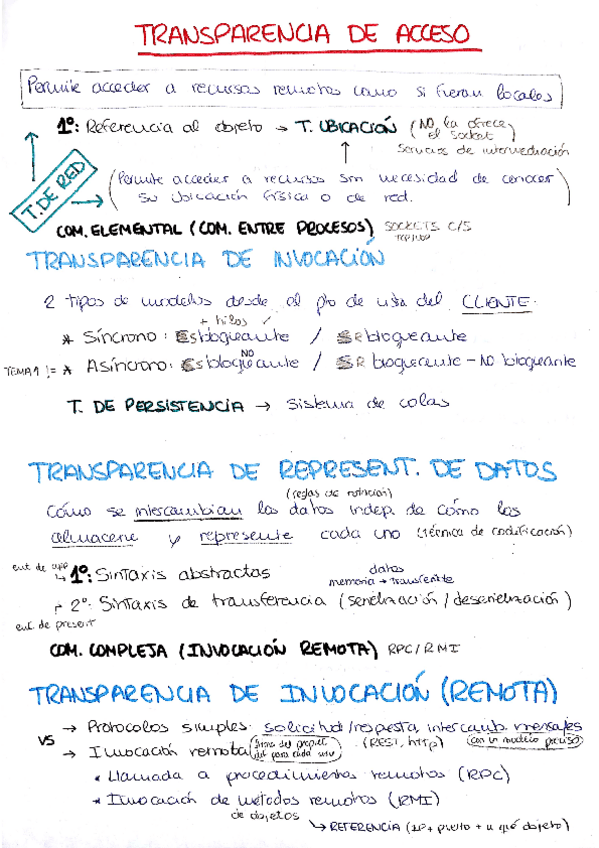 TRANSPARENCIA DE ACCESO
Permite acceder a recursos remotos como si fueran locales
1º: Referencia al objeto → T. UBICACIÓN (NO la ofrece
el socket)
Servicio de intermediación
T. DE RED
(Permite acceder a recursos sin necesidad de conocer
su ubicación física o de red.)
COM. ELEMENTAL (COM. ENTRE PROCESOS) SOCKETS C/S
TCP/UDP
TRANSPARENCIA DE INVOCACIÓN
2 tipos de modelos desde el pto de vista del CLIENTE.
+ hilos ✓
* Síncrono: Es bloqueante / SR bloqueante
NO
TEMA 1 != * Asíncrono: Es bloqueante / SR bloqueante - NO bloqueante
T. DE PERSISTENCIA → Sistema de colas
TRANSPARENCIA DE REPRESENT. DE DATOS
(reglas de notación)
Cómo se intercambian los datos indep. de cómo los
almacene y represente cada uno (técnica de codificación)
ent. de app
↳ 1º: Sintaxis abstractas
datos
memoria → transferible
2º: Sintaxis de transferencia (serialización / deserialización)
ent. de present
COM. COMPLEJA (INVOCACIÓN REMOTA) RPC/RMI
TRANSPARENCIA DE INVOCACIÓN (REMOTA)
VS
→ Protocolos simples: solicitud/respuesta, intercamb. mensajes
(REST, http)
con un modelo preciso
→ Invocación remota
* Llamada a procedimientos remotos (RPC)
* Invocación de métodos remotos (RMI)
de objetos
↳ REFERENCIA (IP + puerto + a qué objeto)